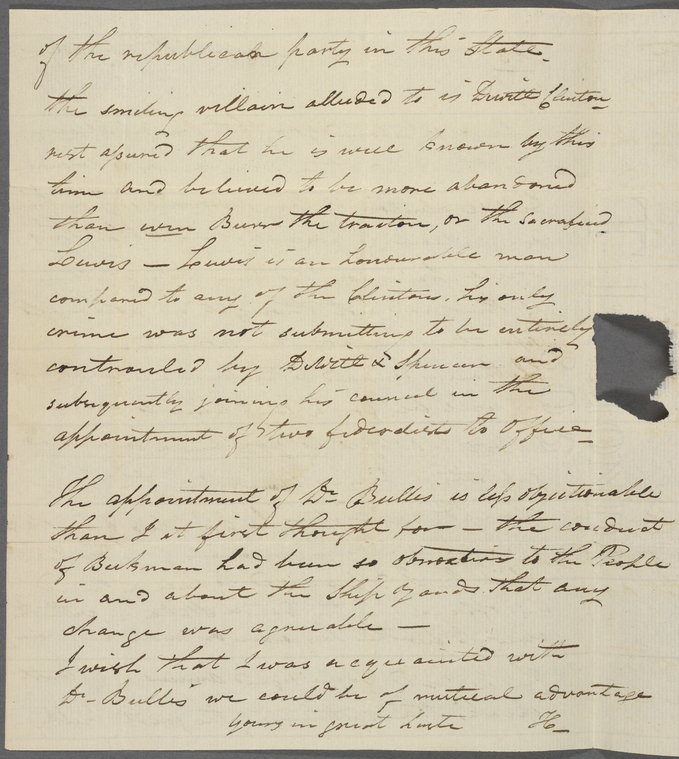 of the republican party in this State.
the smiling villain alluded to is Dewitt Clinton
rest assured that he is well known by this
time and believed to be more abandoned
than even Burr the traitor, or the sacraficed
Lewis — Lewis is an honourable man
compared to any of the Clintons. his only
crime was not submitting to be entirely
controuled by DeWitt & Spencer and
subsequently joining his council in the
appointment of two fedodists to office
The appointment of Dr Bullis is less objectionable
than I at first thought for — the conduct
of Beekman had been so obnoxious to the People
in and about the Ship yards that any
change was agreeable —
I wish that I was acquainted with
Dr Bullis we could be of mutual advantage
yours in great haste H